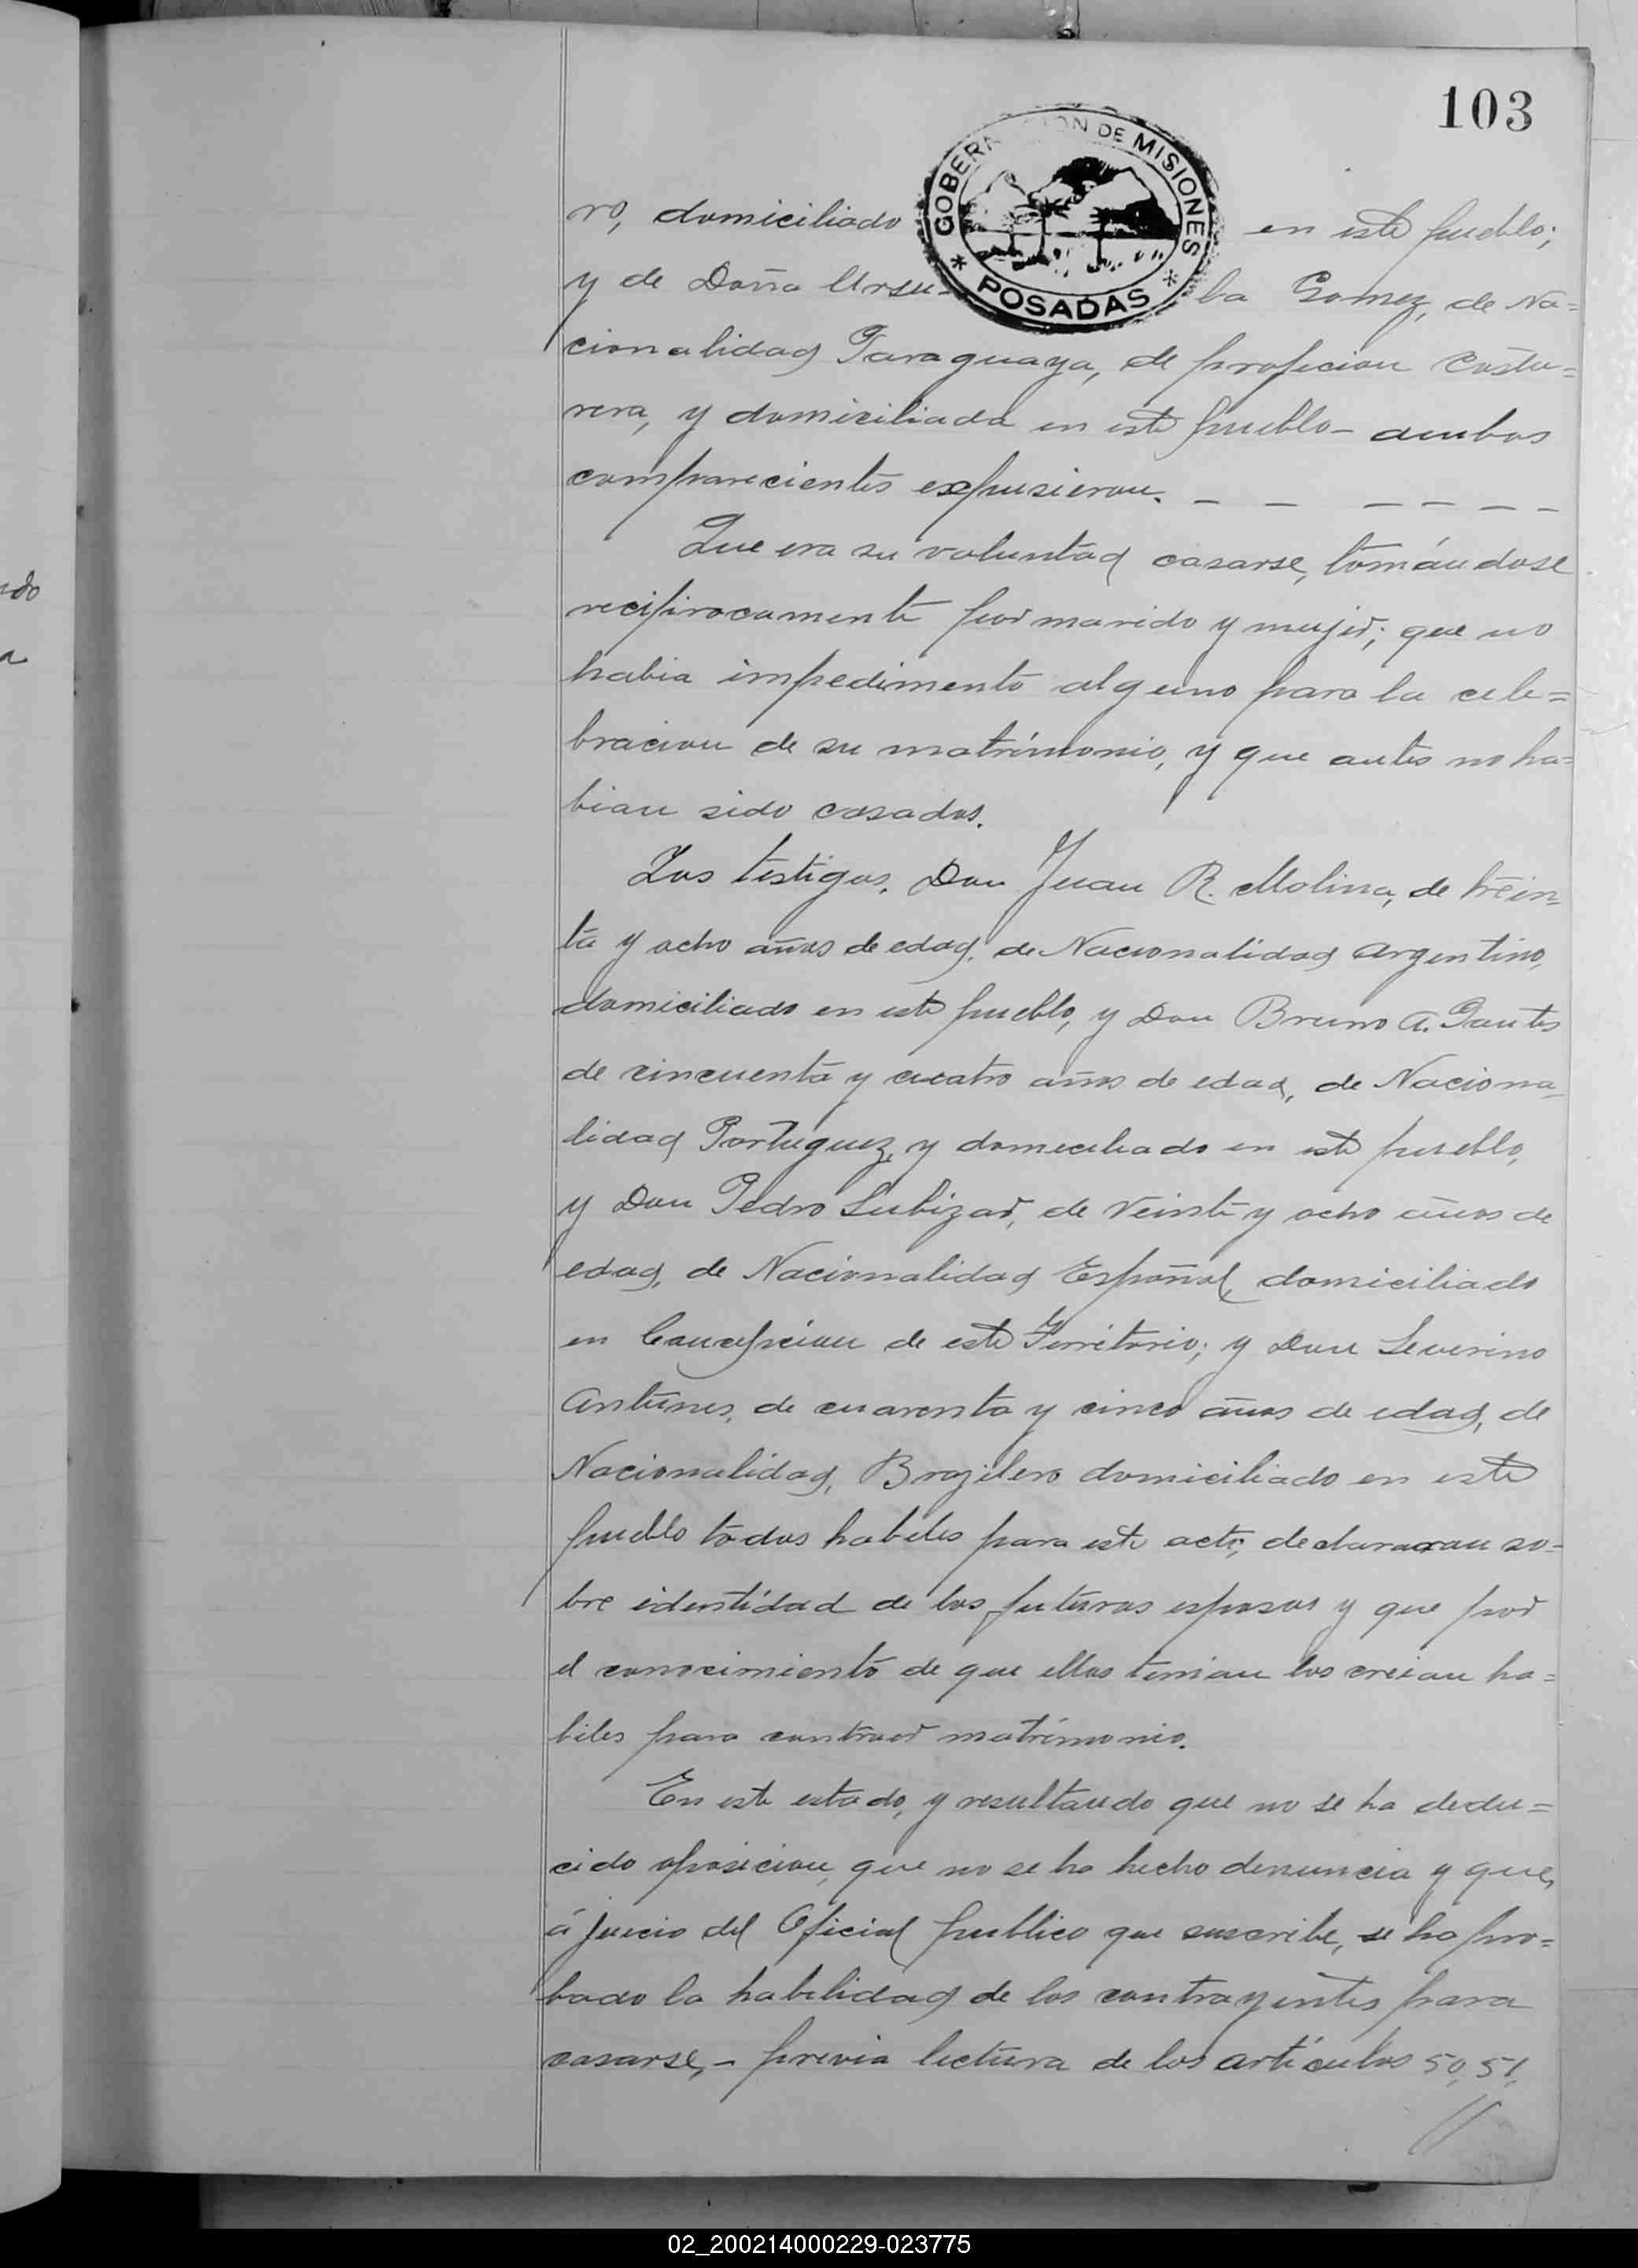 103
GOBERNACION DE MISIONES
* POSADAS *
ro, domiciliado en este pueblo;
y de Doña Ursu- la Gomez, de Na=
cionalidad Paraguaya, de profecion Costu=
rera, y domiciliada en este pueblo - ambos
comparecientes expusieron. - - - - - -
Que era su voluntad casarse, tomándose
reciprocamente por marido y mujer; que no
habia impedimento alguno para la cele=
bracion de su matrimonio, y que antes no ha=
bian sido casados.
Los testigos, Don Juan R. Molina, de trein=
ta y ocho años de edad, de Nacionalidad argentino,
domiciliado en este pueblo, y Don Bruno A.
de cincuenta y cuatro años de edad, de Naciona=
lidad Portuguez, y domeciliado en este pueblo,
y Don Pedro Lubizar, de veinte y ocho años de
edad, de Nacionalidad Español, domiciliado
en Concepcion de este Territorio; y Don Severino
Antunes, de cuarenta y cinco años de edad, de
Nacionalidad, Brazilero domiciliado en este
pueblo todos habiles para este acto; declararan so=
bre identidad de los futuros esposos y que por
el conocimiento de que ellos tenian los creian ha=
biles para contraer matrimonio.
En este estado, y resultando que no se ha dedu=
cido oposicion, que no se ha hecho denuncia y que,
á juicio del Oficial publico que suscribe, se ha pro=
bado la habilidad de los contrayentes para
casarse, - previa lectura de los artículos 50, 51,
//
ndo
a
02_200214000229-023775